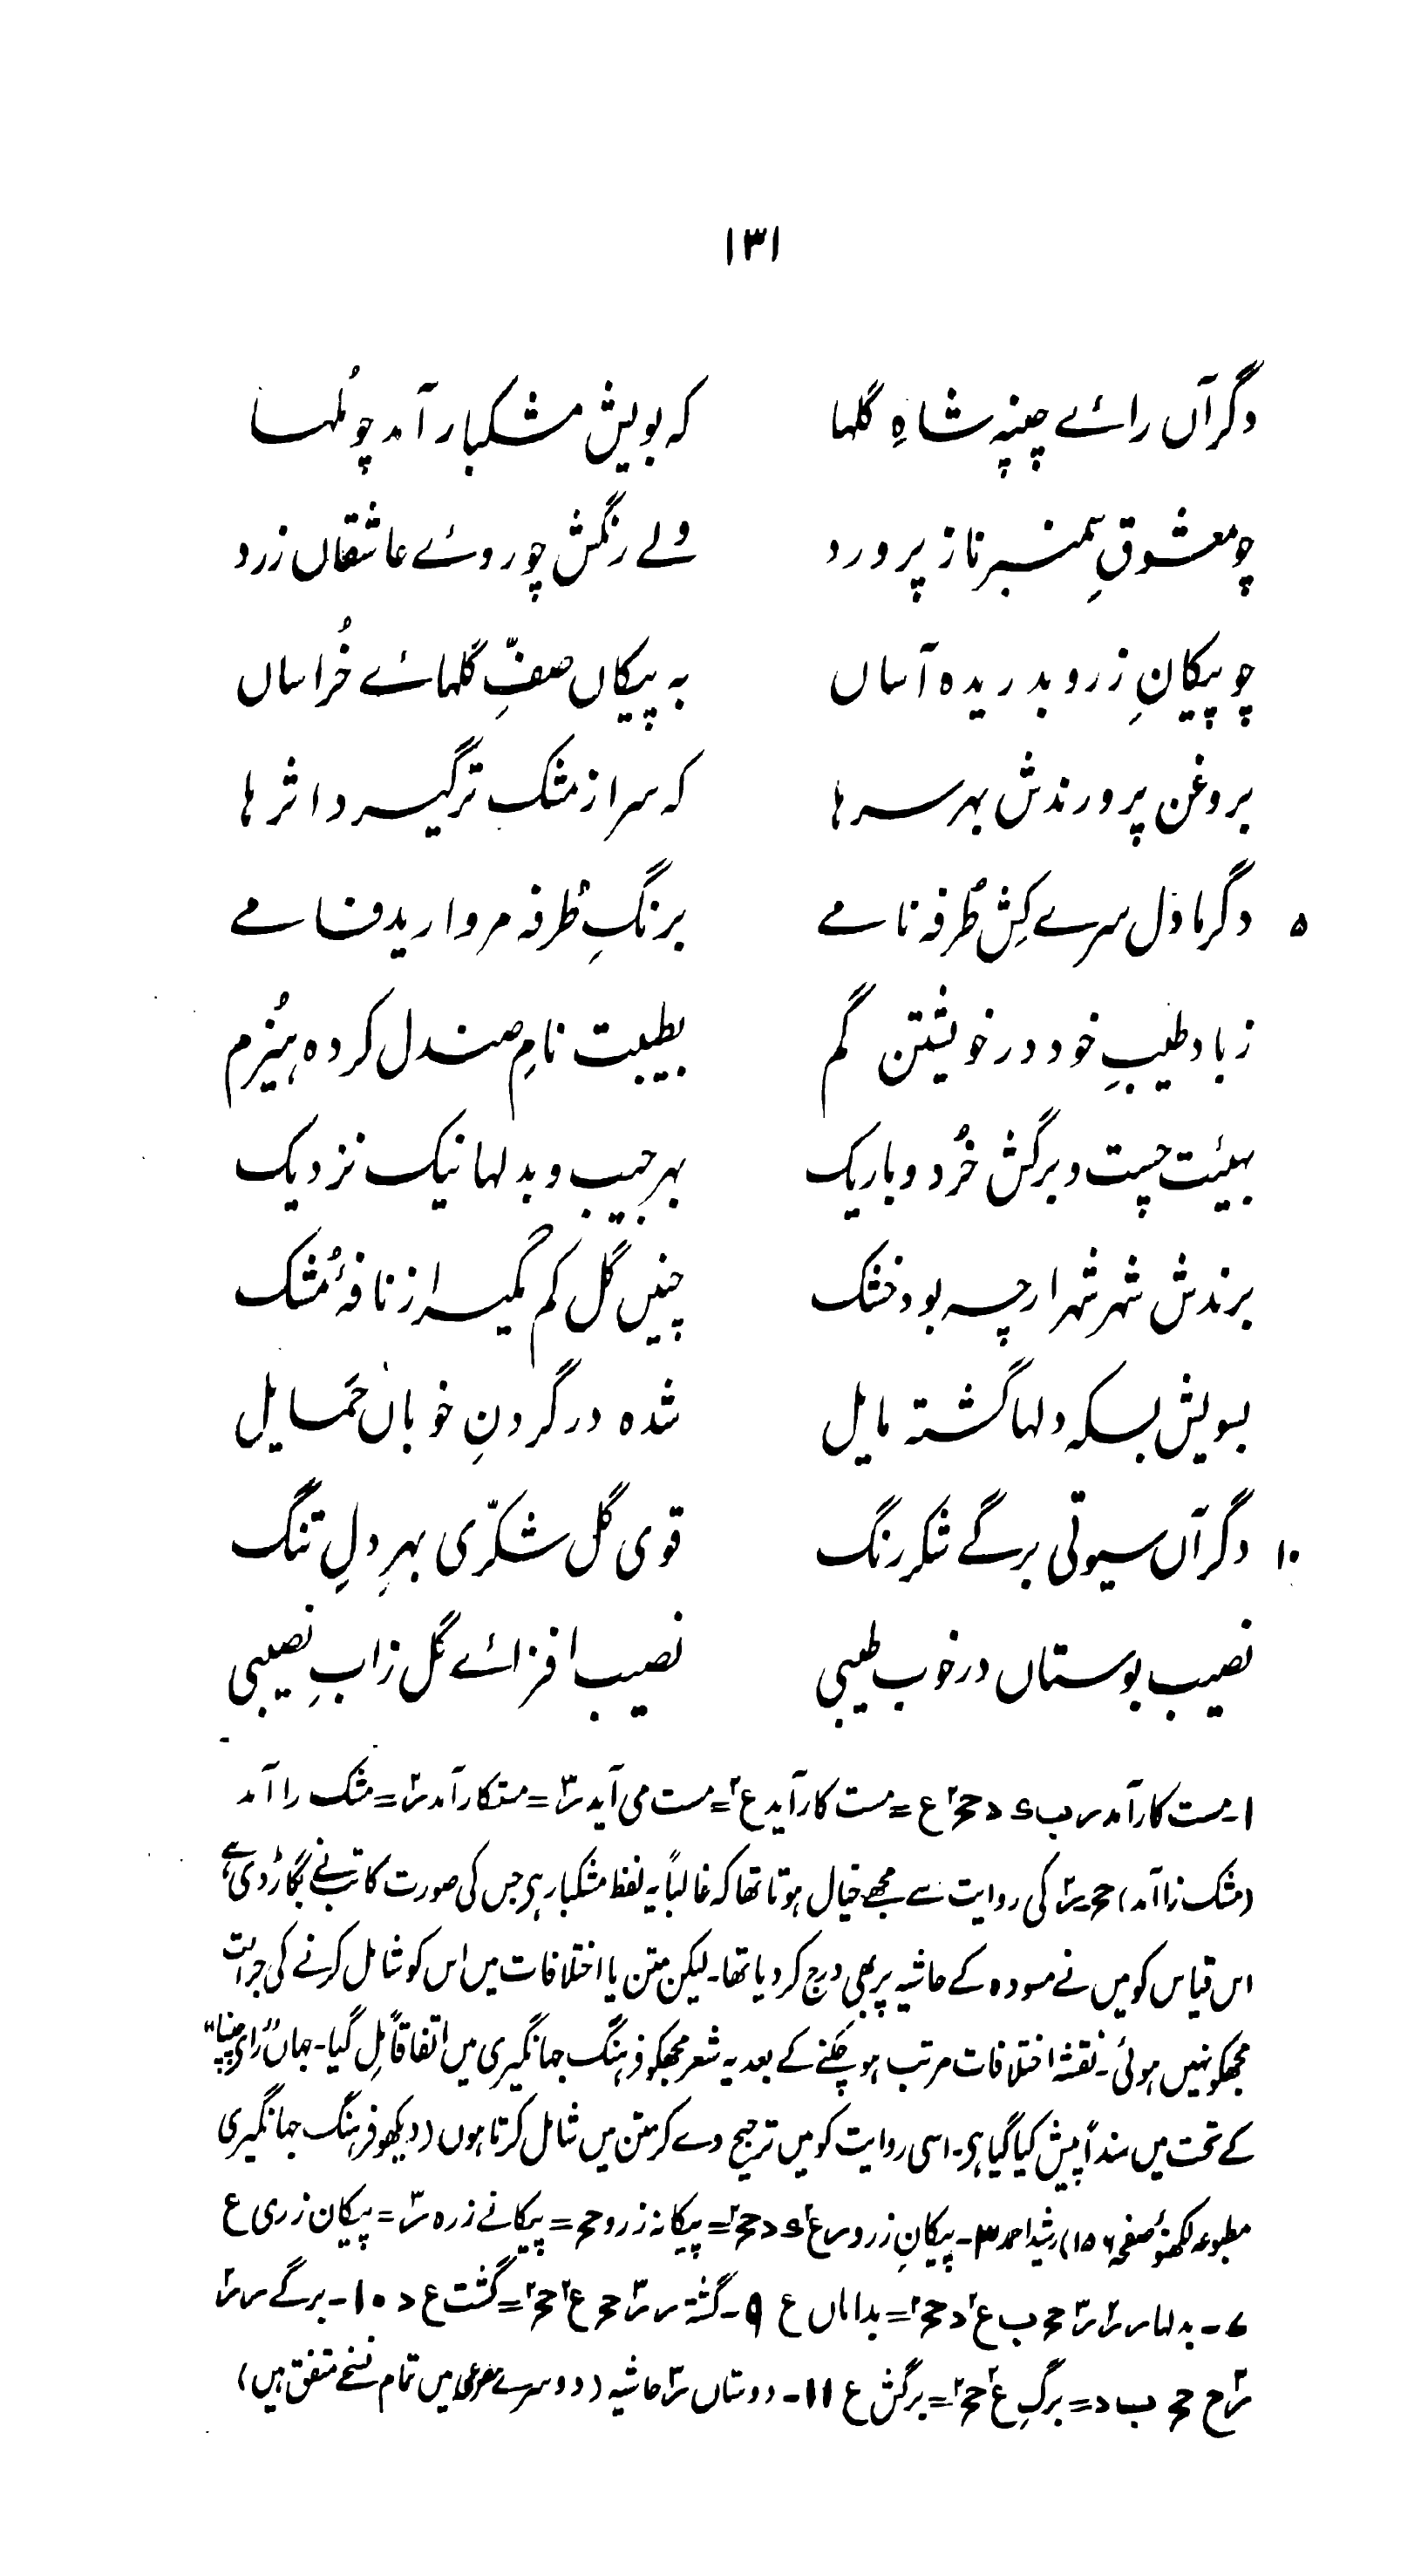 ۱۳۱
دگر آں رائے چنپہ شاہِ گلہا کہ بویش مشکبار آمد چو مُلہا
چو معشوقِ سمنبر ناز پرورد ولے رنگش چو روئے عاشقاں زرد
چو پیکانِ زر و بدریدہ آساں بہ پیکاں صفِّ گلہائے خُراساں
بروغن پرورندش بہر سرہا کہ سر از مشک تر گیرد اثرہا
۵ دگر ماول سرے کِش طُرفہ نامے برنگِ طُرفہ مروارید فامے
ز باد طیبِ خود در خویشتن گم بطیبت نامِ صندل کردہ ہیزُم
بہیئت چست و برگش خُرد و باریک بہر جیب و بدلہا نیک نزدیک
برندش شہر شہر ارچہ بود خشک چنیں گل کم مگیر از نافۂ مُشک
بسویش بسکہ دلہا گشتہ مایل شدہ در گردنِ خوباں حَمایل
۱۰ دگر آں سیوتی برگے شکر رنگ قوی گل شکّری بہرِ دلِ تنگ
نصیب بوستاں در خوب طیبی نصیب افزائے گل زابِ نصیبی
۱۔ مست کار آمد س ب ؤ د حؔح ع = مست کار آید عؔ = مست می آید سؔ = متکار آمد سؔ = مشک را آمد
(مشک زا آمد) حح۔ سؔ کی روایت سے مجھے خیال ہوتا تھا کہ غالباً یہ لفظ مشکبار ہی جس کی صورت کاتب نے بگاڑ دی ہے
اس قیاس کو میں نے مسودہ کے حاشیہ پر بھی درج کر دیا تھا۔ لیکن متن یا اختلافات میں اس کو شامل کرنے کی جرات
مجھکو نہیں ہوئی۔ نقشہ اختلافات مرتب ہو چکنے کے بعد یہ شعر مجھکو فرہنگ جہانگیری میں اتفاقاً مِل گیا۔ جہاں ”رای چنپا“
کے تحت میں سنداً پیش کیا گیا ہی۔ اسی روایت کو میں ترجیح دے کر متن میں شامل کرتا ہوں (دیکھو فرہنگ جہانگیری
مطبوعہ لکھنؤ صفحہ ۱۵۶) رشید احمد ۳۔ پیکانِ زر و س عؔ ؤ د حؔح = پیکانہ زر و حح = پیکانے زرہ سؔ = پیکان زری ع
۷۔ بدلہا س سؔ سؔ حح ب عؔ د حؔح = بداماں ع ۹۔ گشتہ س سؔ حح عؔ حؔح = گشت ع د ۱۰۔ برگے س سؔ
سؔ ح حح ب د = برگِ عؔ حؔح = برگش ع ۱۱۔ دوستاں سؔ حاشیہ (دوسرے مصرعی میں تمام نسخے متفق ہیں)